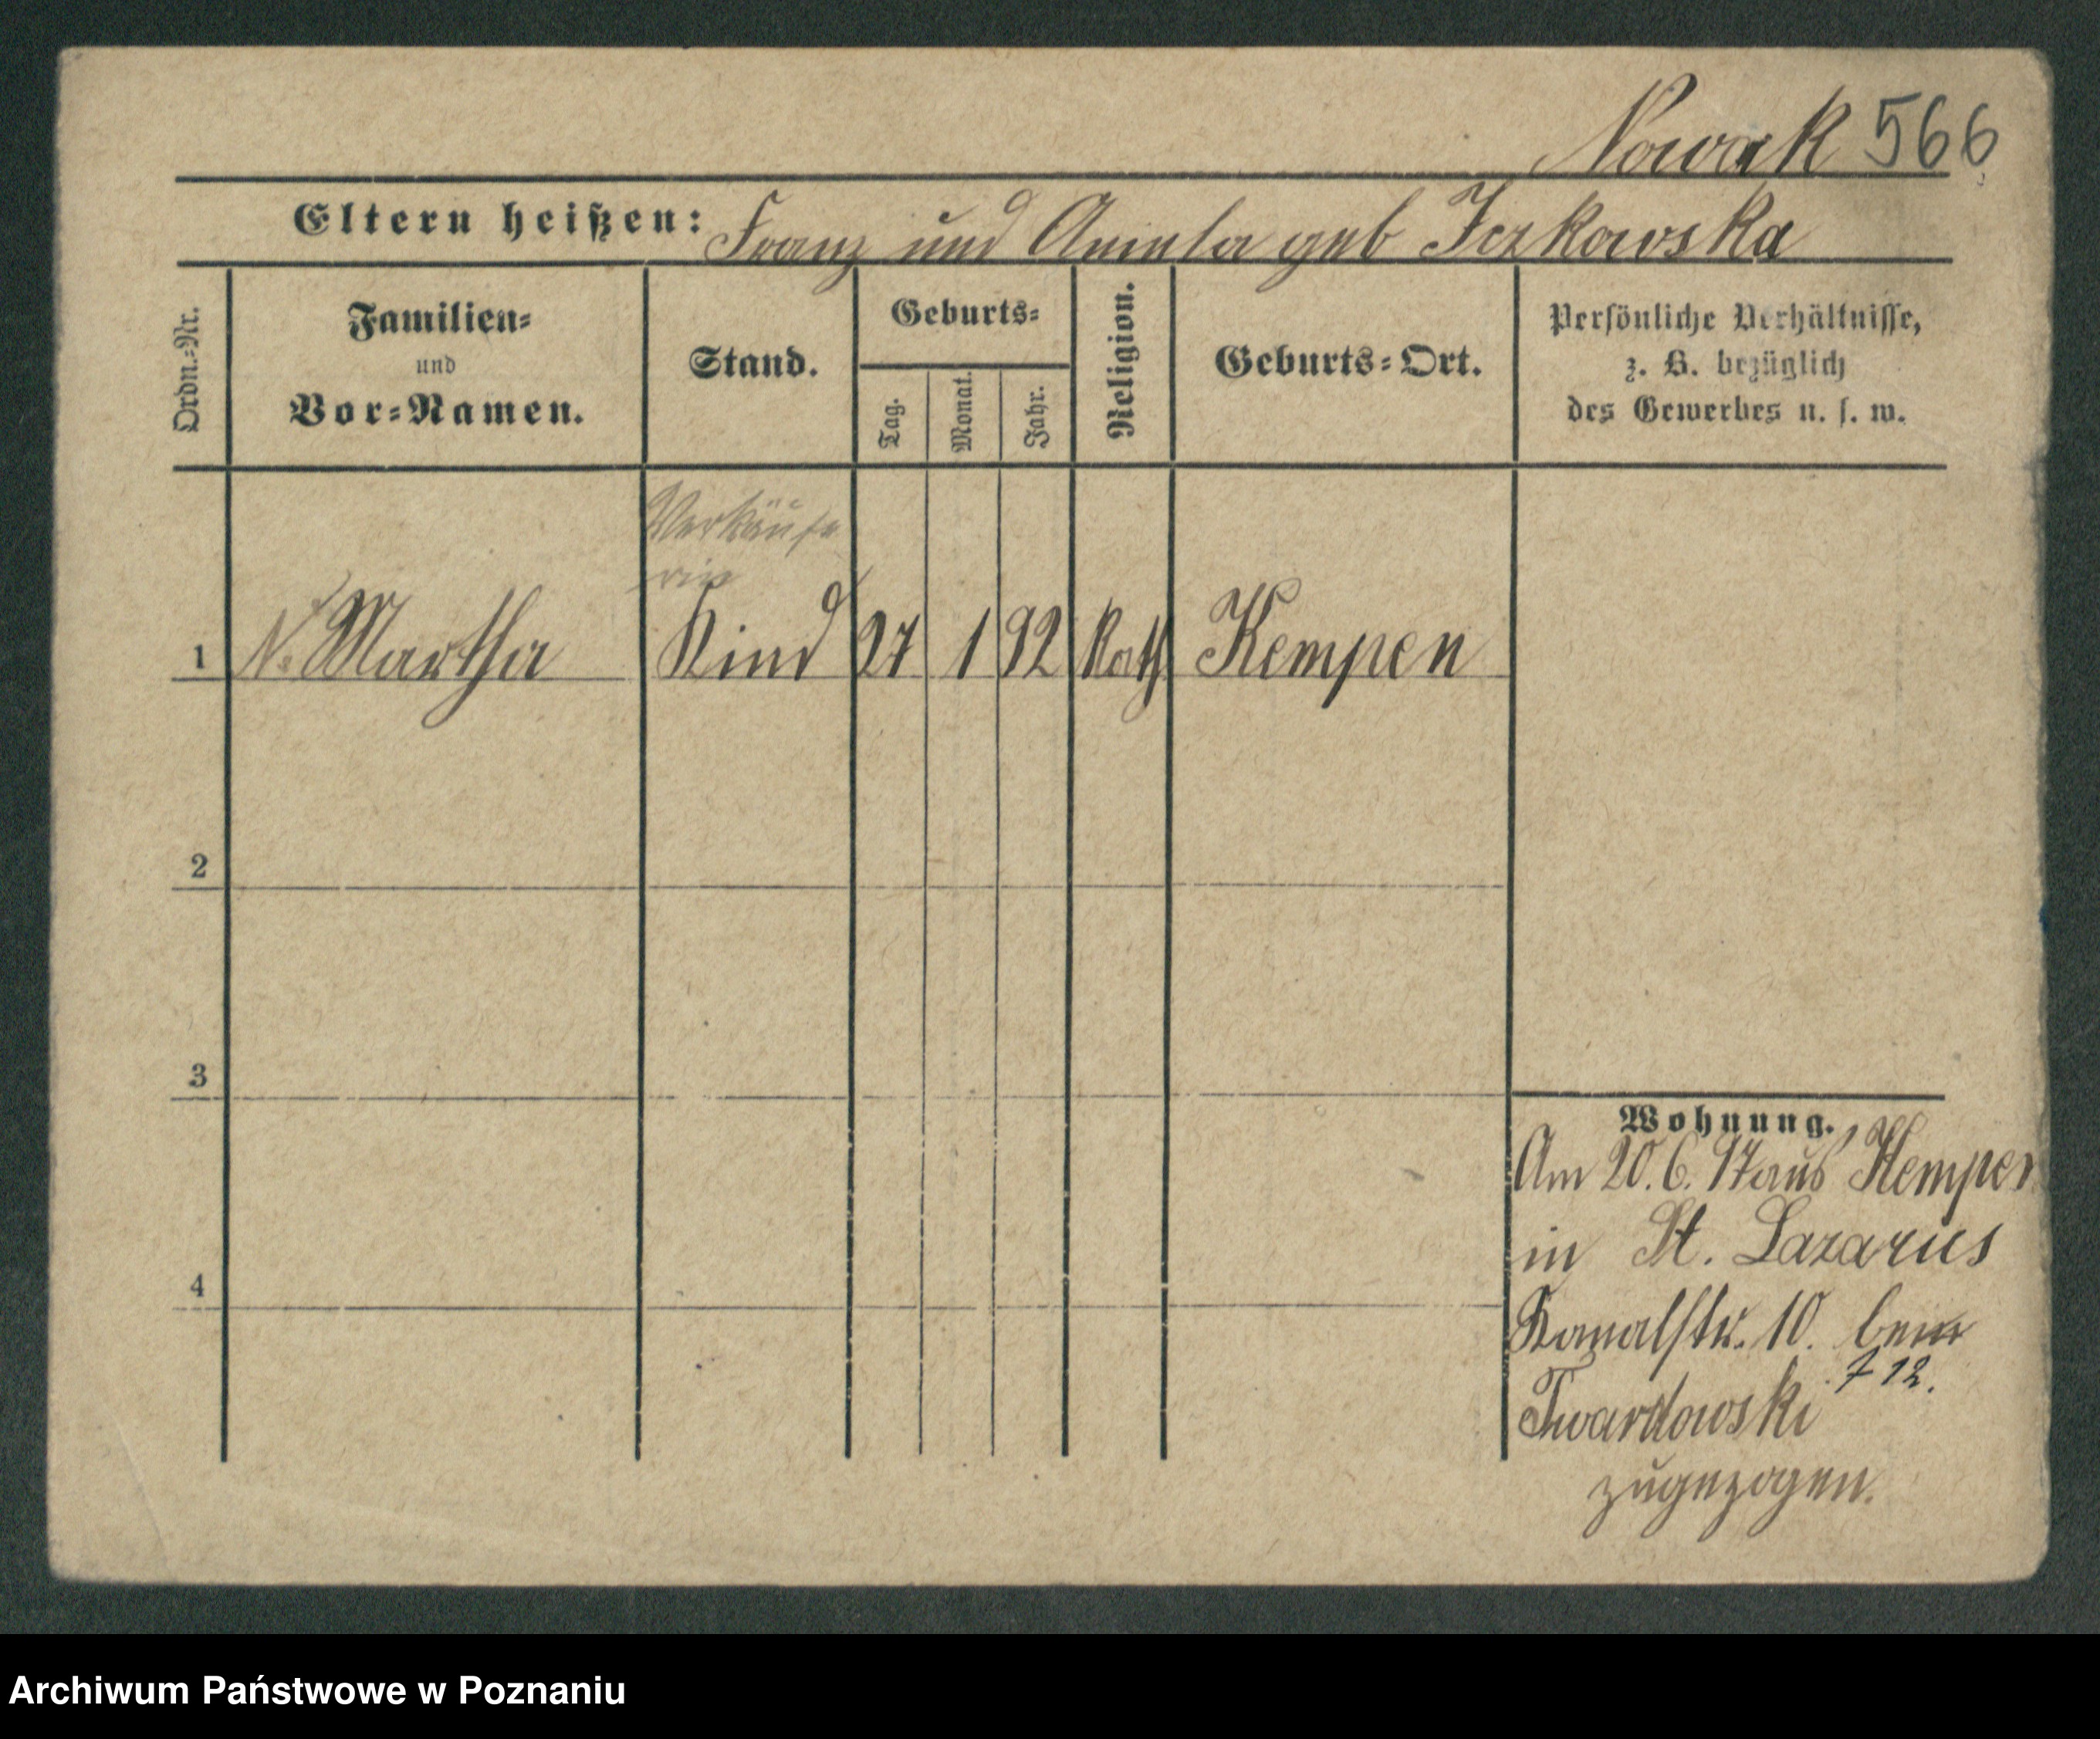 Nowak 566
Eltern heißen: Franz und Aniela geb Iczkowska
Ordn.-Nr.
Familien-
und
Vor-Namen.
Stand.
Geburts-
Tag.
Monat.
Jahr.
Religion.
Geburts-Ort.
Persönliche Verhältnisse,
z. B. bezüglich
des Gewerbes u. s. w.
Verkäufe
rin
1 N. Martha Kind 27 1 92 Kath Kempen
2
3
4
Wohnung.
Am 20. 6. 97 aus Kempen
in St. Lazarus
Kanalstr. 10. beim
Twardowski 7 12.
zugezogen.
Archiwum Państwowe w Poznaniu